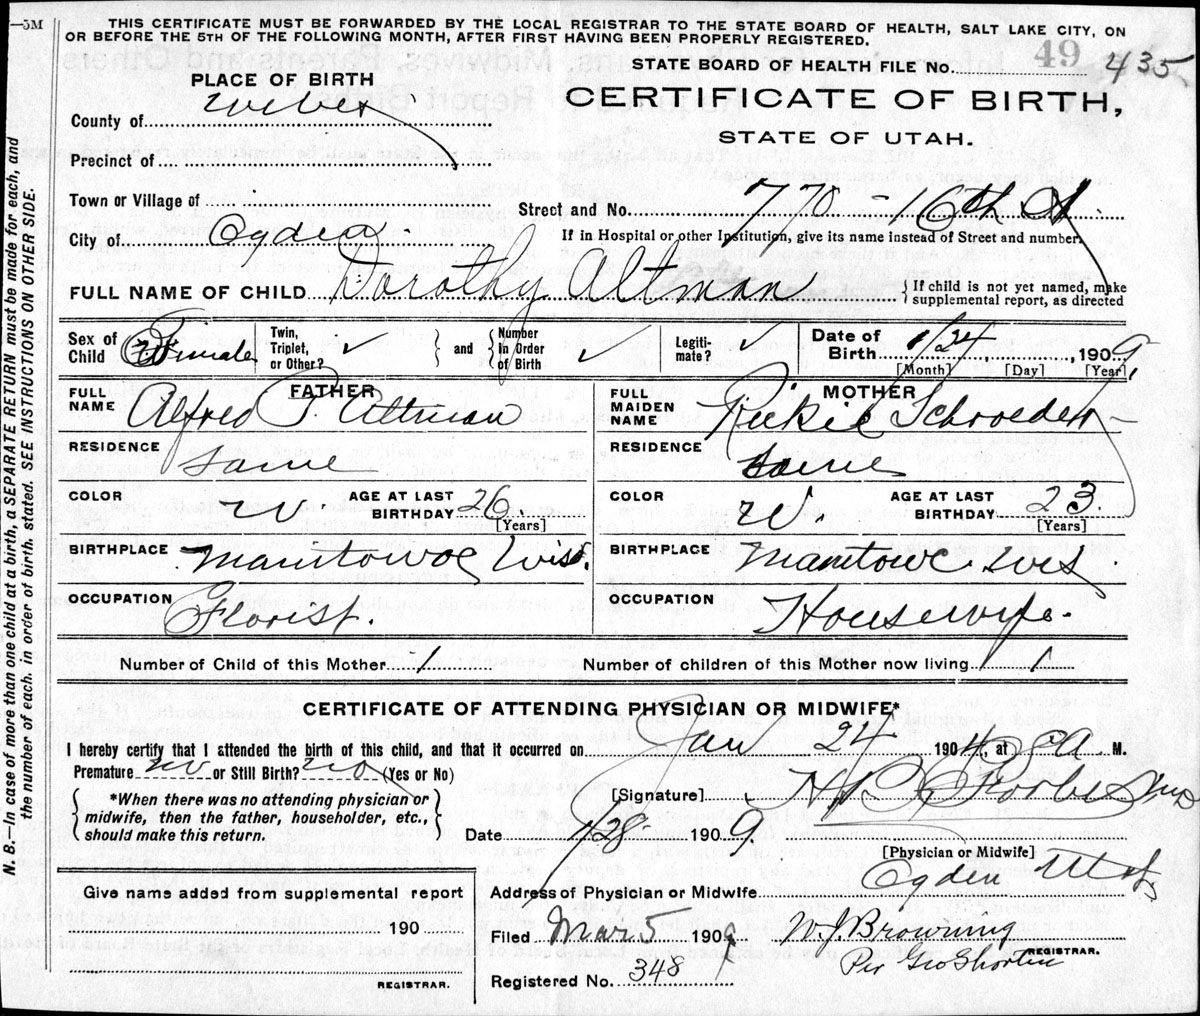 —5M
THIS CERTIFICATE MUST BE FORWARDED BY THE LOCAL REGISTRAR TO THE STATE BOARD OF HEALTH, SALT LAKE CITY, ON
OR BEFORE THE 5TH OF THE FOLLOWING MONTH, AFTER FIRST HAVING BEEN PROPERLY REGISTERED.
STATE BOARD OF HEALTH FILE No. 49 435
PLACE OF BIRTH
CERTIFICATE OF BIRTH,
County of Weber
STATE OF UTAH.
Precinct of
Town or Village of
Street and No. 770 - 16th St.
City of Ogden
If in Hospital or other Institution, give its name instead of Street and number.
FULL NAME OF CHILD Dorothy Altman
If child is not yet named, make
supplemental report, as directed
Sex of Child Female
Twin, Triplet, or Other? ✓ and Number in Order of Birth ✓
Legitimate? ✓
Date of Birth 1/24, 1909
[Month] [Day] [Year]
FATHER
MOTHER
FULL NAME Alfred T. Altman
FULL MAIDEN NAME Rickie Schroeder
RESIDENCE Same
RESIDENCE Same
COLOR W
AGE AT LAST BIRTHDAY 26 [Years]
COLOR W.
AGE AT LAST BIRTHDAY 23. [Years]
BIRTHPLACE Manitowoc Wis.
BIRTHPLACE Manitowc Wis.
OCCUPATION Florist.
OCCUPATION Housewife.
Number of Child of this Mother 1
Number of children of this Mother now living 1
CERTIFICATE OF ATTENDING PHYSICIAN OR MIDWIFE*
I hereby certify that I attended the birth of this child, and that it occurred on Jan 24 190 , at A M.
Premature no or Still Birth? no (Yes or No)
[Signature] Forbes MD
*When there was no attending physician or
midwife, then the father, householder, etc.,
should make this return.
Date 1/28 1909.
[Physician or Midwife]
Give name added from supplemental report
190
REGISTRAR.
Address of Physician or Midwife Ogden Utah
Filed Mar 5 1909 W. J. Browning
REGISTRAR.
Per Geo Shorten
Registered No. 348
N. B.—In case of more than one child at a birth, a SEPARATE RETURN must be made for each, and
the number of each, in order of birth, stated. SEE INSTRUCTIONS ON OTHER SIDE.